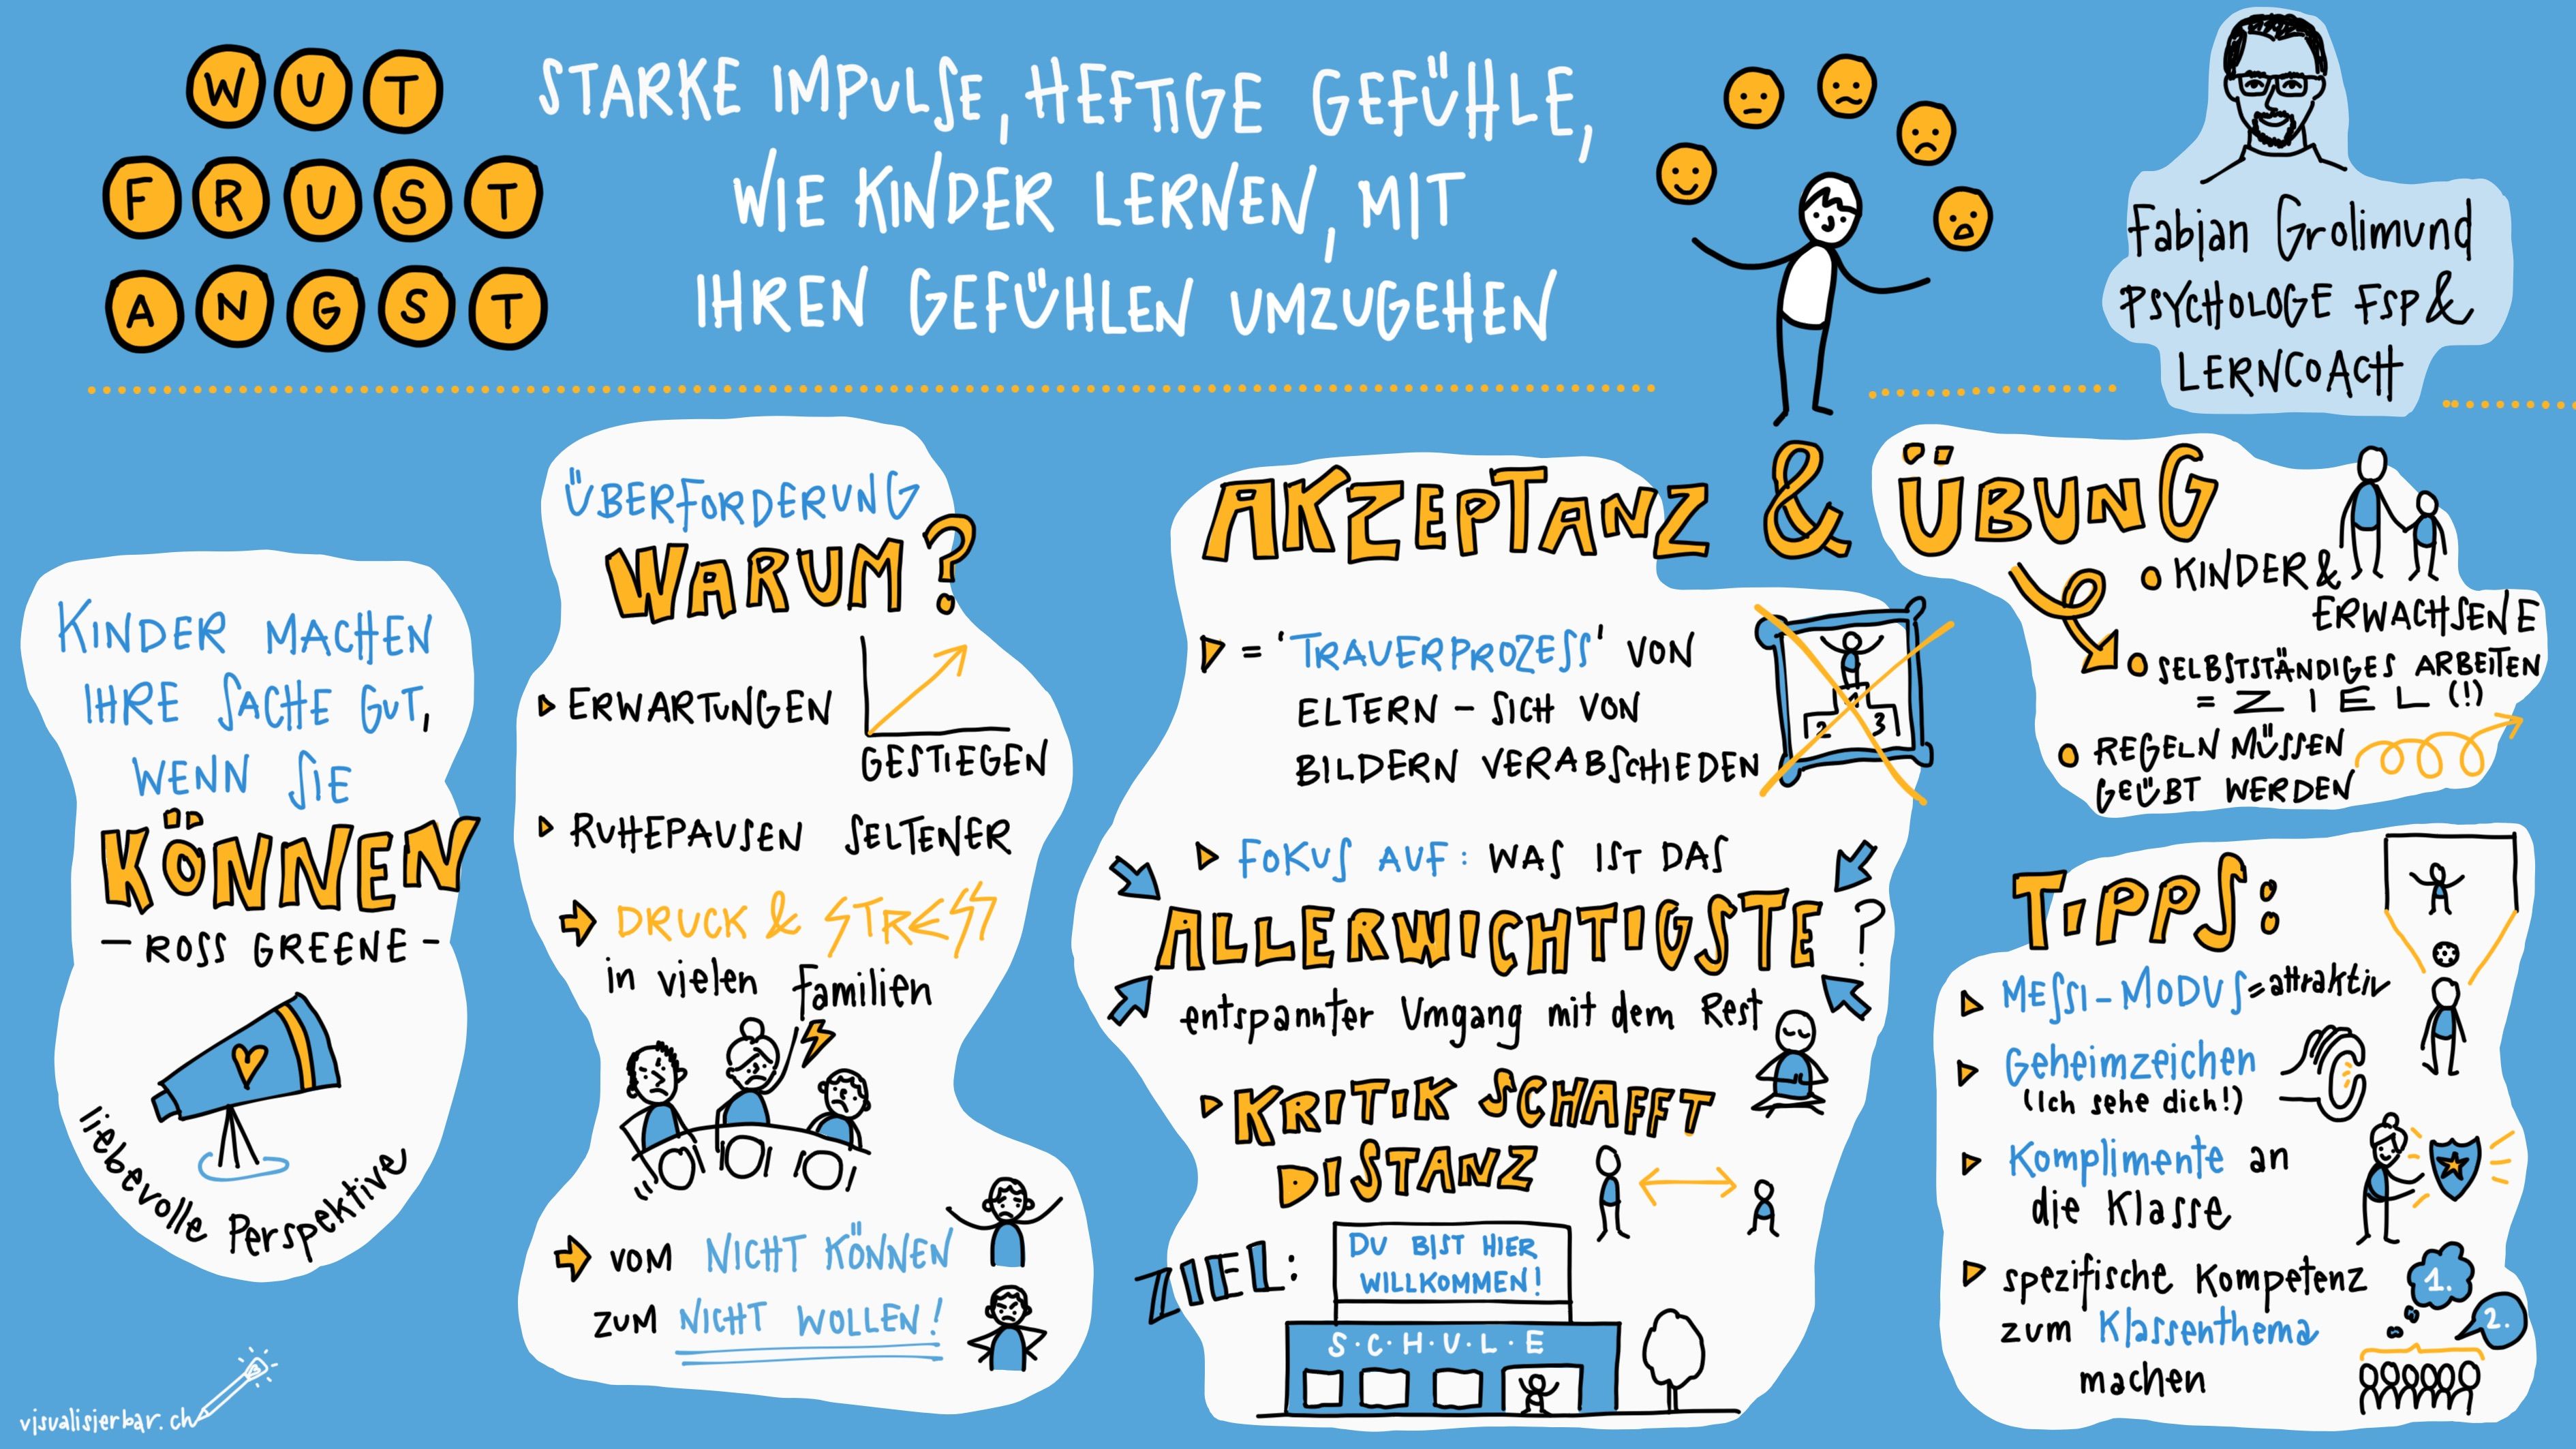 WUT
FRUST
ANGST
STARKE IMPULSE, HEFTIGE GEFÜHLE,
WIE KINDER LERNEN, MIT
IHREN GEFÜHLEN UMZUGEHEN
Fabian Grolimund
PSYCHOLOGE FSP &
LERNCOACH
KINDER MACHEN
IHRE SACHE GUT,
WENN SIE
KÖNNEN
- ROSS GREENE -
liebevolle Perspektive
visualisierbar.ch
ÜBERFORDERUNG
WARUM?
ERWARTUNGEN
GESTIEGEN
RUHEPAUSEN SELTENER
DRUCK & STRESS
in vielen Familien
VOM NICHT KÖNNEN
ZUM NICHT WOLLEN!
AKZEPTANZ & ÜBUNG
= 'TRAUERPROZESS' VON
ELTERN - SICH VON
BILDERN VERABSCHIEDEN
1
2 3
FOKUS AUF: WAS IST DAS
ALLERWICHTIGSTE?
entspannter Umgang mit dem Rest
KRITIK SCHAFFT
DISTANZ
ZIEL:
DU BIST HIER
WILLKOMMEN!
S·C·H·U·L·E
KINDER &
ERWACHSENE
SELBSTSTÄNDIGES ARBEITEN
= ZIEL (!)
REGELN MÜSSEN
GEÜBT WERDEN
TIPPS:
MESSI-MODUS = attraktiv
Geheimzeichen
(Ich sehe dich!)
Komplimente an
die Klasse
spezifische Kompetenz
zum Klassenthema
machen
1.
2.